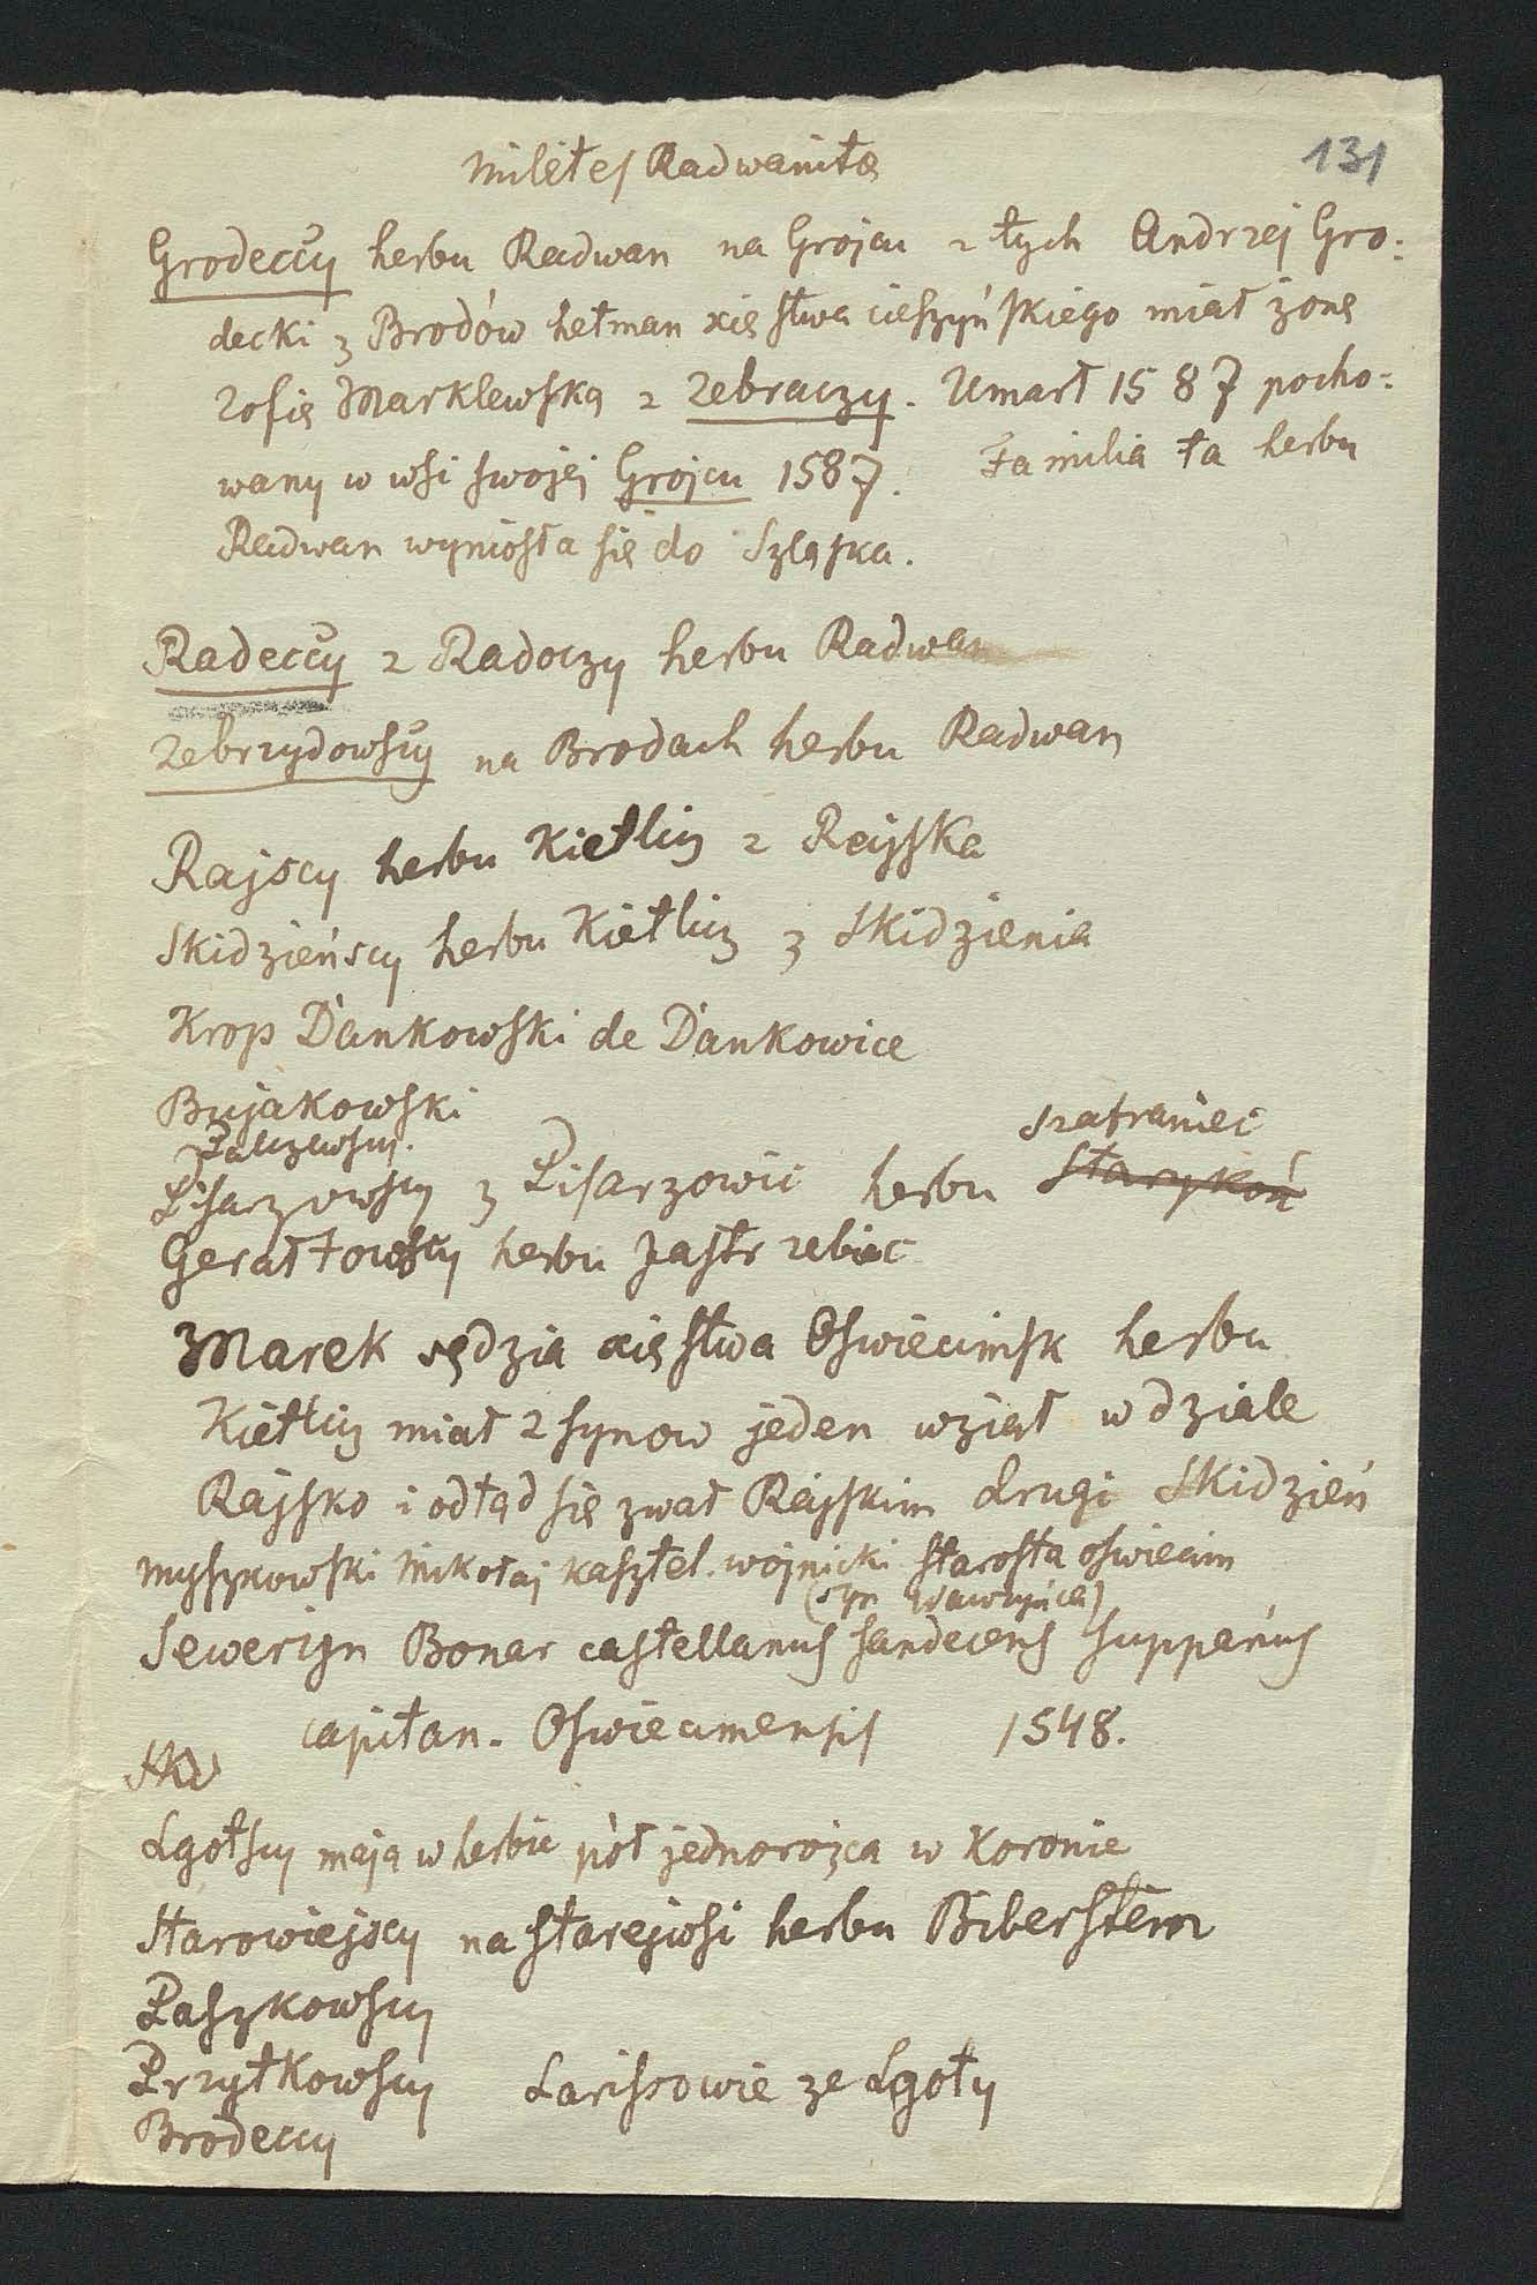 milites Radwanitæ
131
Grodeccy herbu Radwan na Grojcu z tych Andrzej Gro:
decki z Brodów hetman xięstwa cieszyńskiego miał żonę
Zofię Marklewską z Zebraczy. Umarł 1587 pocho:
wany w wsi swojej Grojcu 1587. Familia ta herbu
Radwan wyniosła się do Szląska.
Radeccy z Radoczy herbu Radwan
Zebrzydowscy na Brodach herbu Radwan
Rajscy herbu Kietlicz z Rajska
Skidzieńscy herbu Kietlicz z Skidzienia
Krop Dankowski de Dankowice
Bujakowski
Palczewscy.
szafraniec
Pisarzowscy z Pisarzowic herbu Starykoń
Gerałtowscy herbu Jastrzebiec
Marek sędzia xięstwa Oswiecimsk herbu
Kietlicz miał 2 synow jeden wziął w dziale
Rajsko i odtąd się zwał Rajskim drugi Skidzień
Myszkowski Mikołaj kasztel. wojnicki starosta oswiecim
(syn Wawrzyńca)
Sewerign Bonar castellanus sandecens suppanus
capitan. Oswiecimensis 1548.
Lgotscy mają w herbie pół jednorożca w Koronie
Starowiejscy na starejwsi herbu Biberstein
Paszkowscy
Przytkowscy Larissowie ze Lgoty
Brodeccy